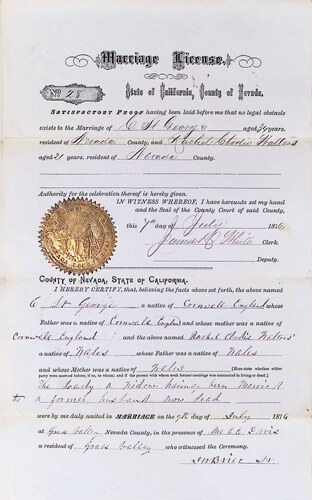 Marriage License.
No. 28
State of California, County of Nevada.
SATISFACTORY PROOF having been laid before me that no legal obstacle
exists to the Marriage of E St George aged 34 years,
resident of Nevada County, and Rachel Clodie Walters
aged 21 years, resident of Nevada County.
Authority for the celebration thereof is hereby given.
IN WITNESS WHEREOF, I have hereunto set my hand
and the Seal of the County Court of said County,
this 7th day of July 1876
James Clerk.
Deputy.
COUNTY OF NEVADA, STATE OF CALIFORNIA.
I HEREBY CERTIFY, that, believing the facts above set forth, the above named
E. St George a native of Cornwall England whose
Father was a native of Cornwall England and whose mother was a native of
Cornwall England and the above named Rachel Clodie Walters
a native of Wales whose Father was a native of Wales
and whose Mother was a native of Wales [Here state whether either
party were married before, if so, to whom; and if the person with whom such former marriage was contracted is living or dead.]
The Lady a Widow having been Married
to a former husband now dead
were by me duly united in MARRIAGE on the 9th day of July 1876
at Grass Valley, Nevada County, in the presence of Davis
a resident of Grass Valley who witnessed the Ceremony.
J W Brier Sr.